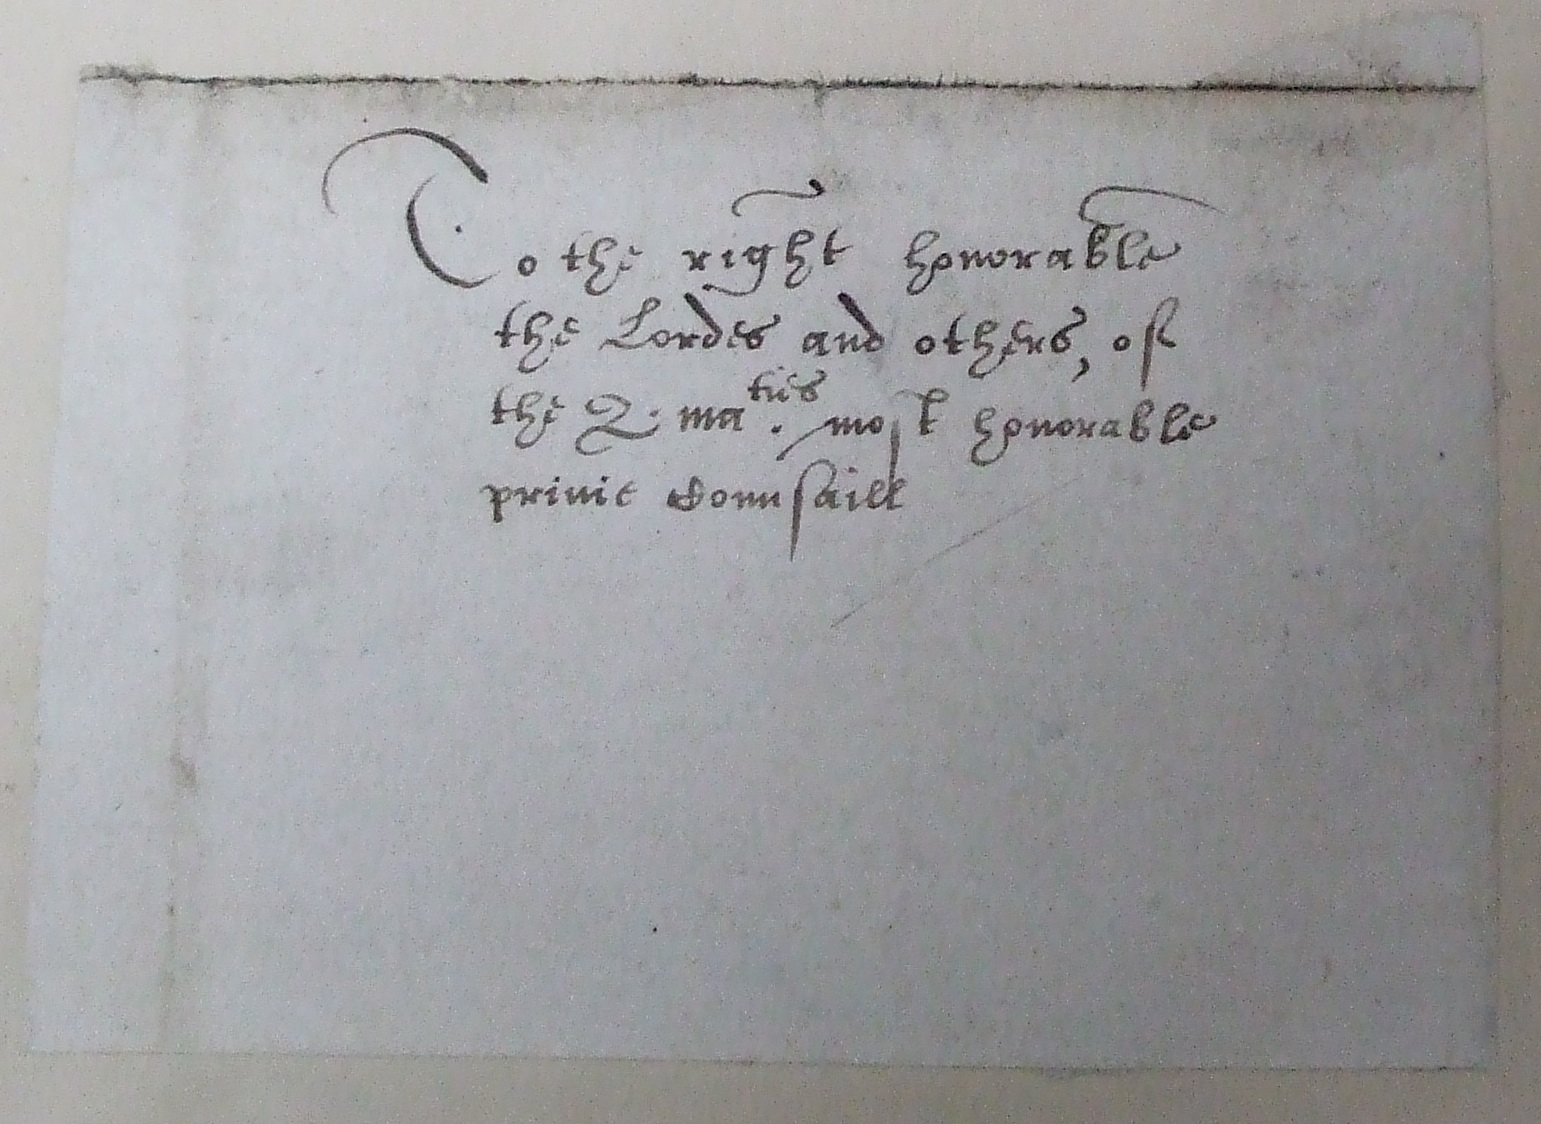 To the right honorable
the Lordes and others, of
the Q. ma^ties. most honorable
privie Counsaill